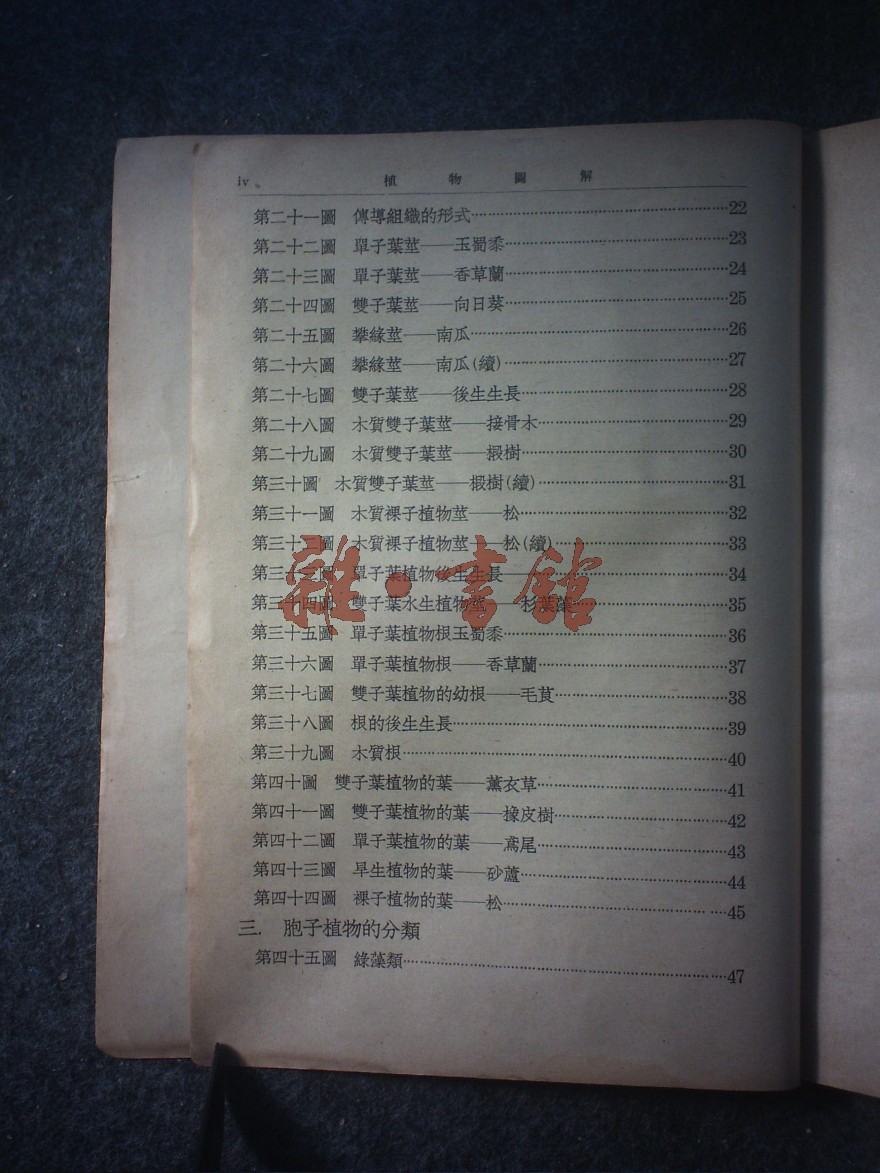 iv 植物圖解
第二十一圖 傳導組織的形式 22
第二十二圖 單子葉莖——玉蜀黍 23
第二十三圖 單子葉莖——香草蘭 24
第二十四圖 雙子葉莖——向日葵 25
第二十五圖 攀緣莖——南瓜 26
第二十六圖 攀緣莖——南瓜(續) 27
第二十七圖 雙子葉莖——後生生長 28
第二十八圖 木質雙子葉莖——接骨木 29
第二十九圖 木質雙子葉莖——椴樹 30
第三十圖 木質雙子葉莖——椴樹(續) 31
第三十一圖 木質裸子植物莖——松 32
第三十二圖 木質裸子植物莖——松(續) 33
第三十三圖 單子葉植物後生生長 34
第三十四圖 雙子葉水生植物莖——杉葉藻 35
第三十五圖 單子葉植物根玉蜀黍 36
第三十六圖 單子葉植物根——香草蘭 37
第三十七圖 雙子葉植物的幼根——毛茛 38
第三十八圖 根的後生生長 39
第三十九圖 木質根 40
第四十圖 雙子葉植物的葉——薰衣草 41
第四十一圖 雙子葉植物的葉——橡皮樹 42
第四十二圖 單子葉植物的葉——鳶尾 43
第四十三圖 旱生植物的葉——砂蘆 44
第四十四圖 裸子植物的葉——松 45
三. 胞子植物的分類
第四十五圖 綠藻類 47
雜·書館